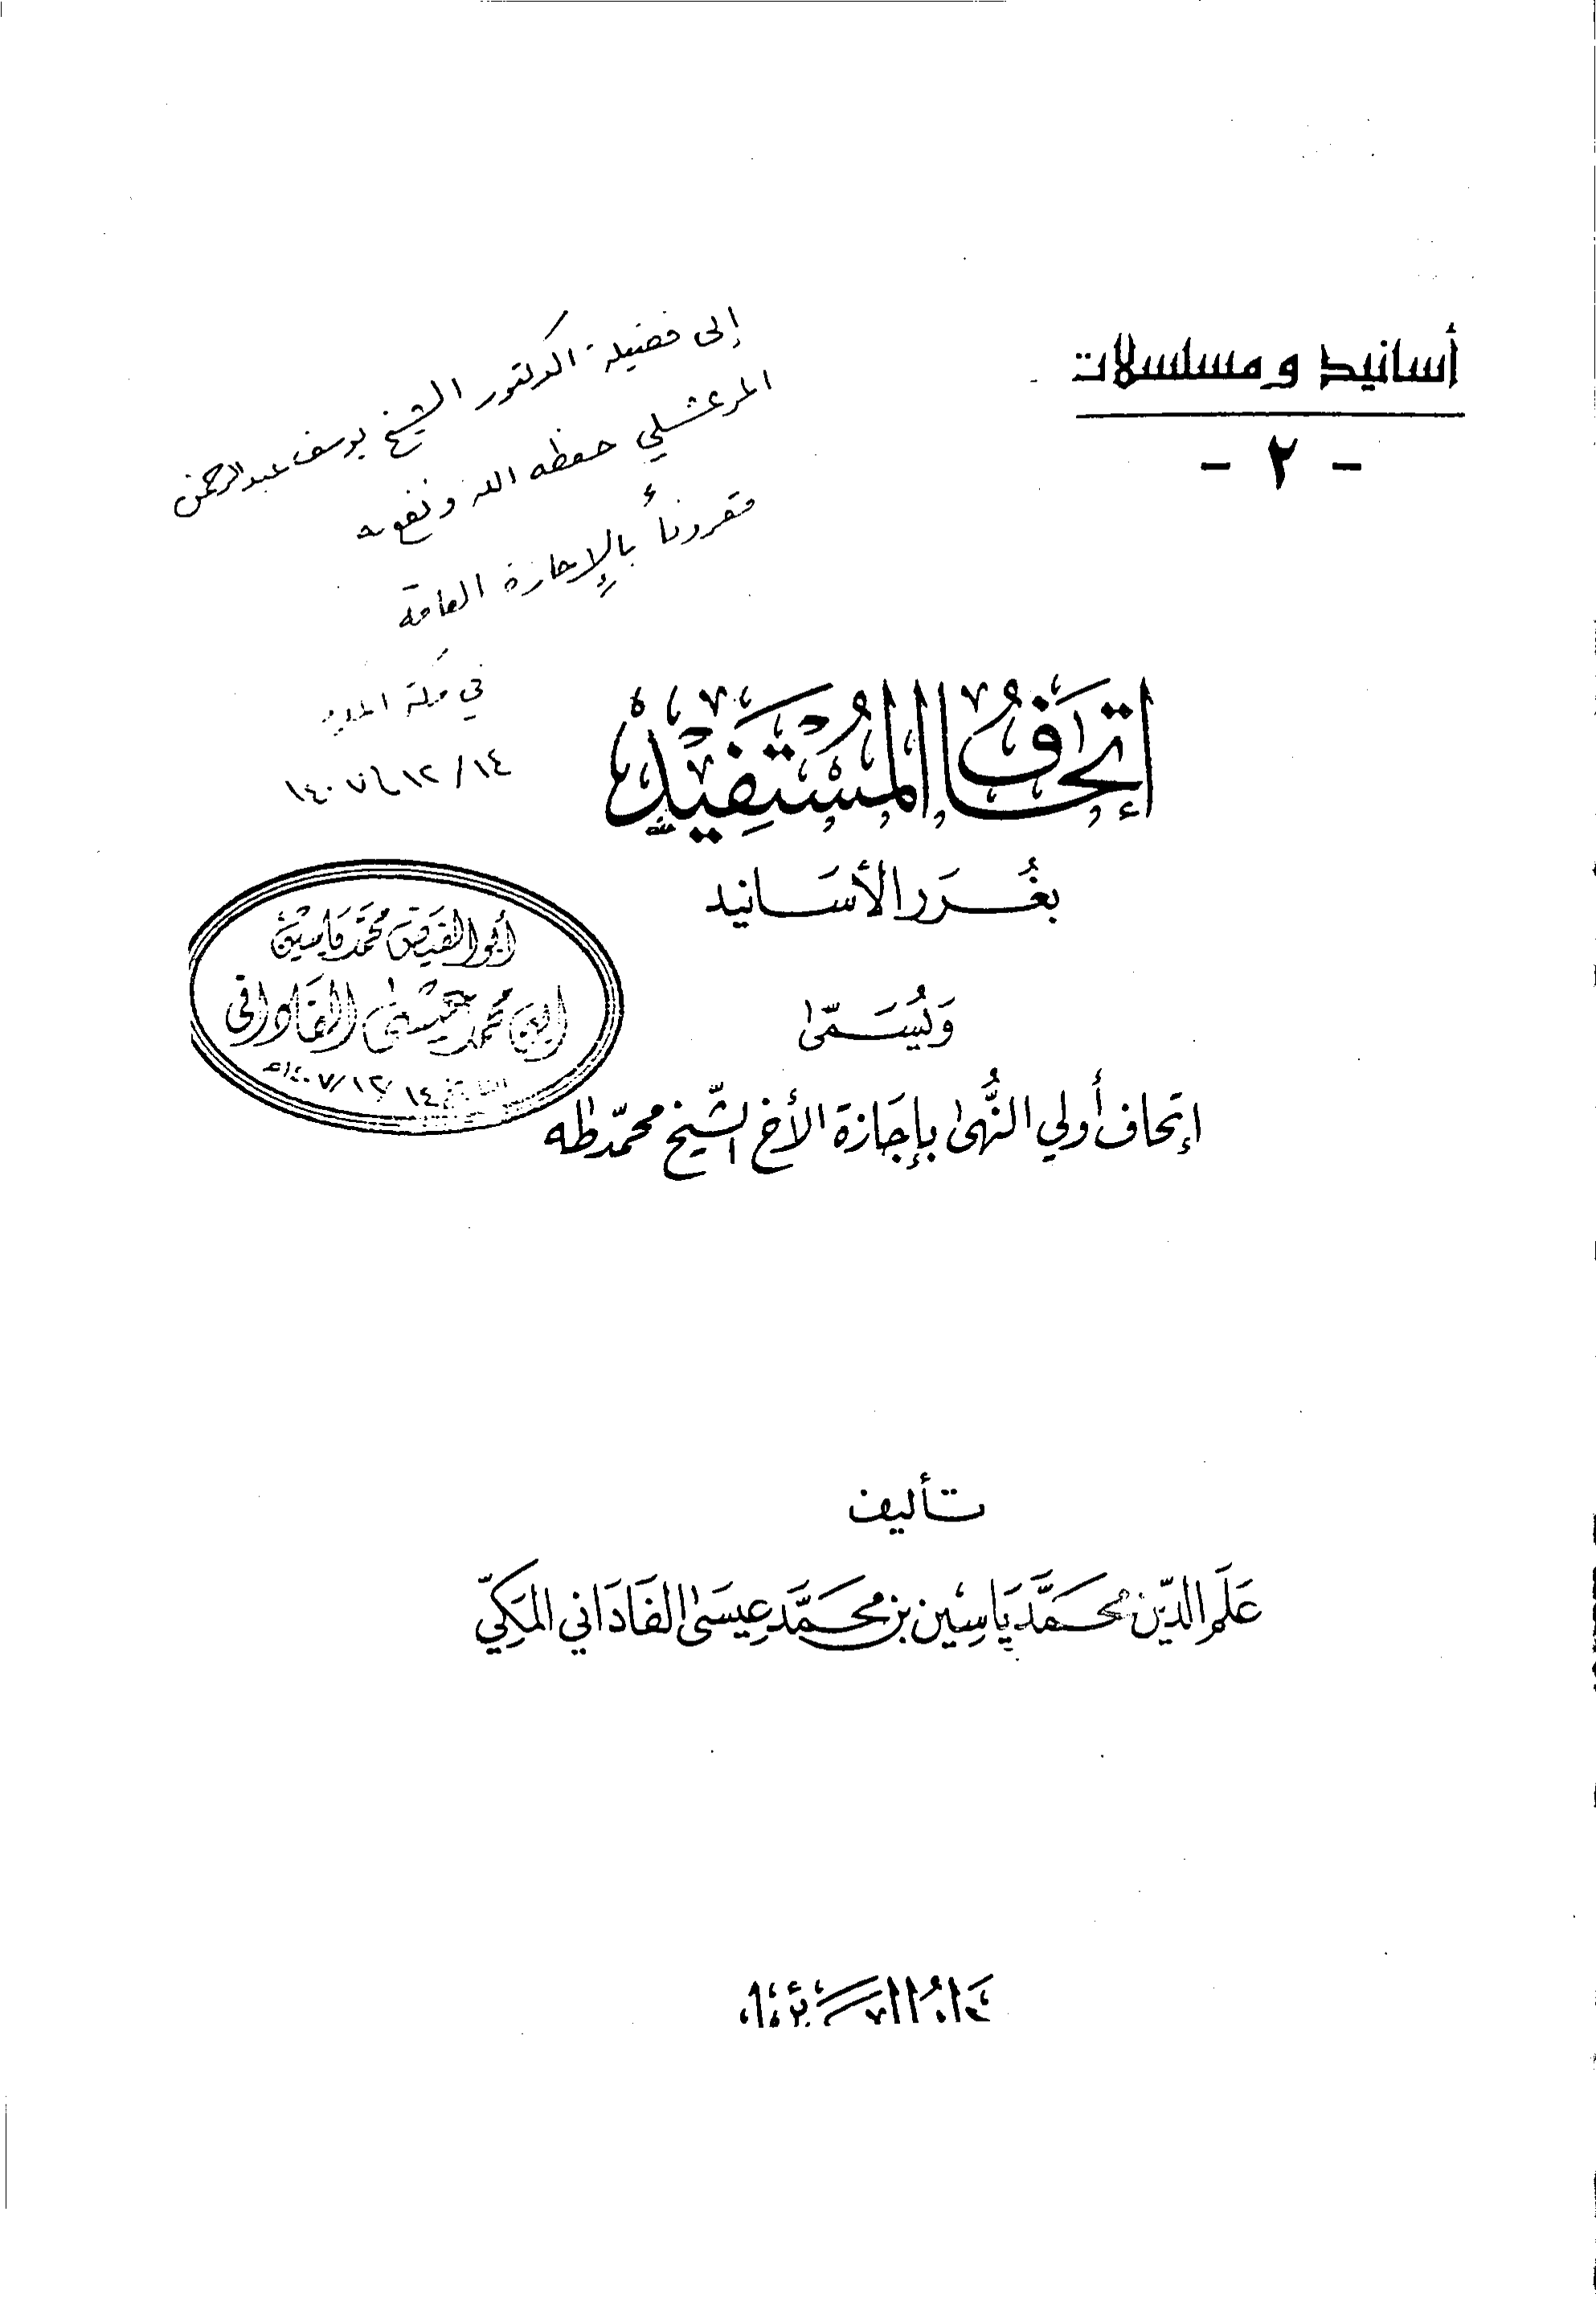 أسانيد ومسلسلات
- ٢ -
إلى فضيلة الدكتور الشيخ يوسف عبدالرحمن
المرعشلي حفظه الله ونفع به
مقروناً بالإجازة العامة
في مكة المكرمة
١٤/١٢/١٤٠٧
إتحَافُ المُسْتَفِيْد
بغُرَر الأسَانيد
وَيُسَمّىٰ
إتحاف أولي النُّهىٰ بإجَازة الأخ الشّيخ محمّد طٰه
أبو الفيض محمَّد ياسين
ابن محمد عيسى الفاداني
التاريخ ١٤/١٢/١٤٠٧هـ
تأليف
عَلَم الدّين محَمَّد يَاسِين بن محَمَّد عِيسَىٰ الفَادَاني المَكِّي